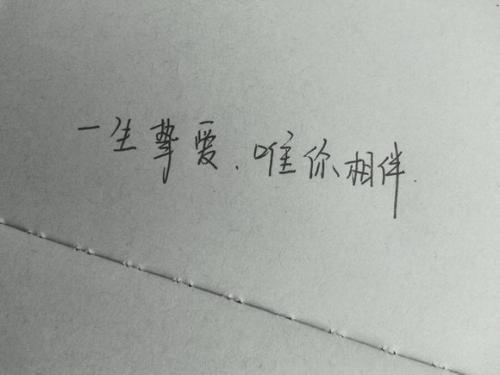 一生挚爱、唯你相伴.